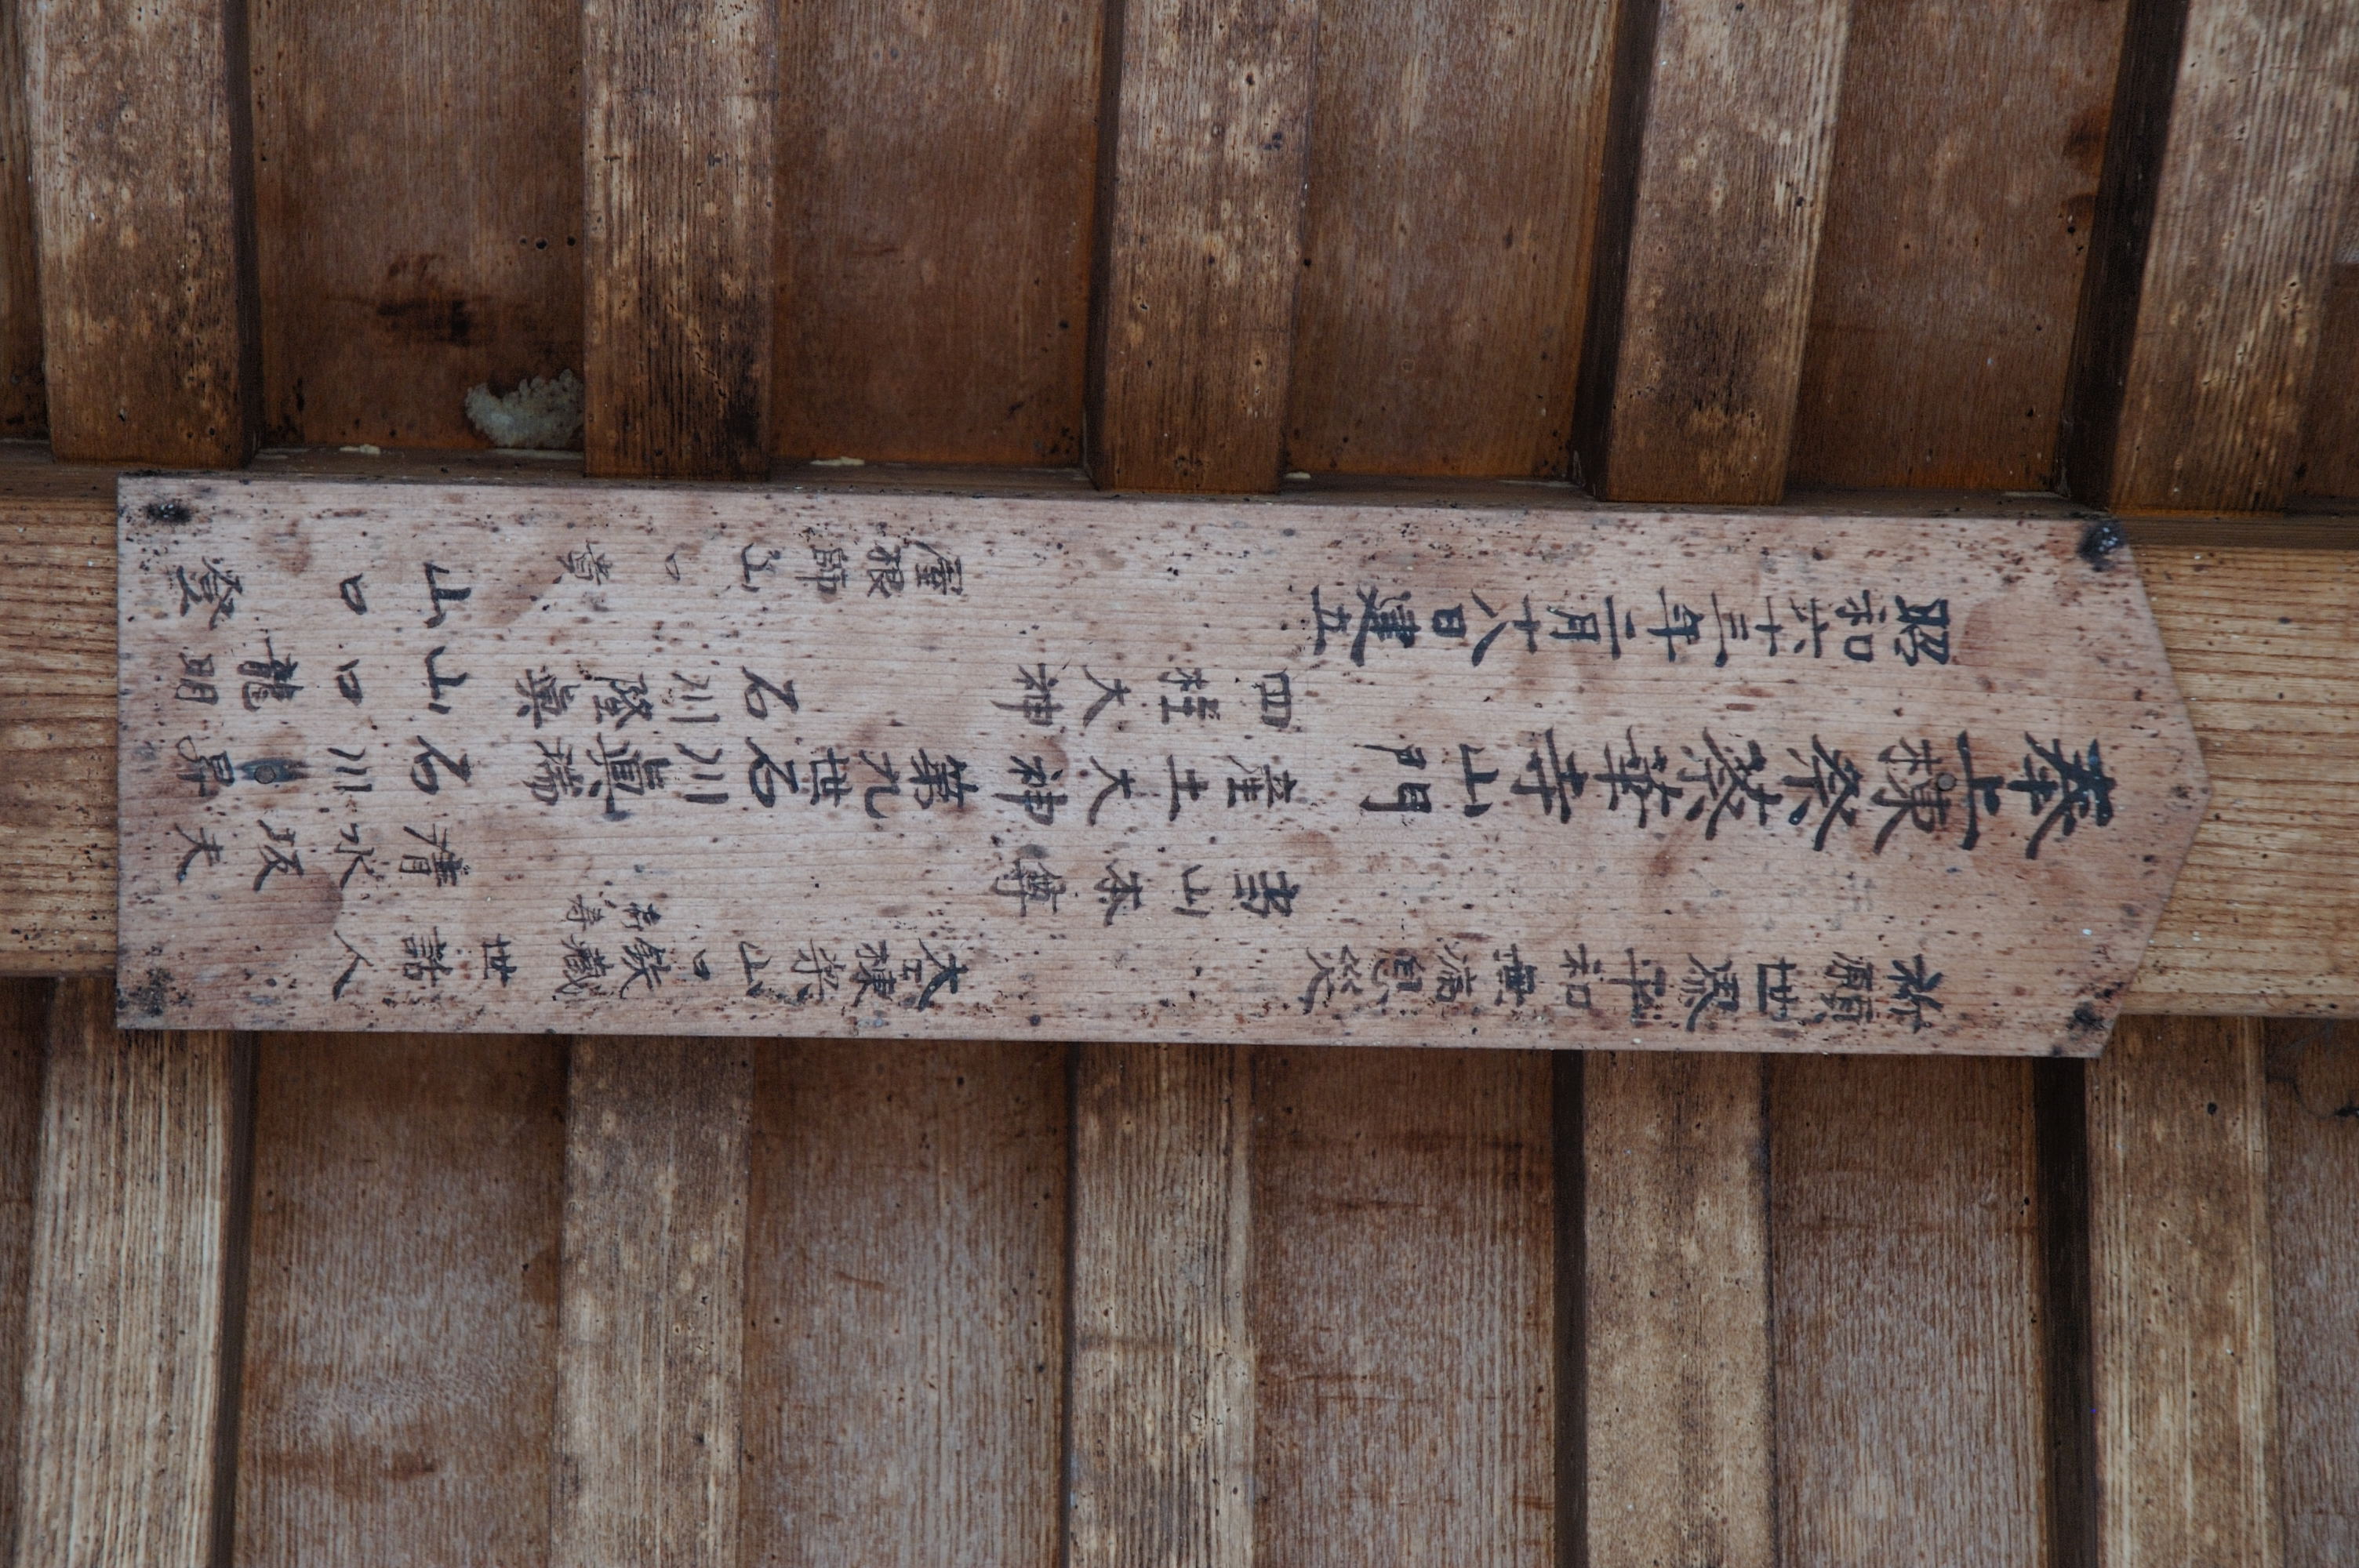 祈願世界平和無病息災
奉上棟祭 華寺山門
昭和六十三年二月十八日建立
吉山本傳
産土大神
四柱大神
大工棟梁 山口鉄蔵
第九世 石川眞瑞
石川證眞
屋根師 山口
世話人
清水坂夫
石川 昇
山口龍明
山口 登